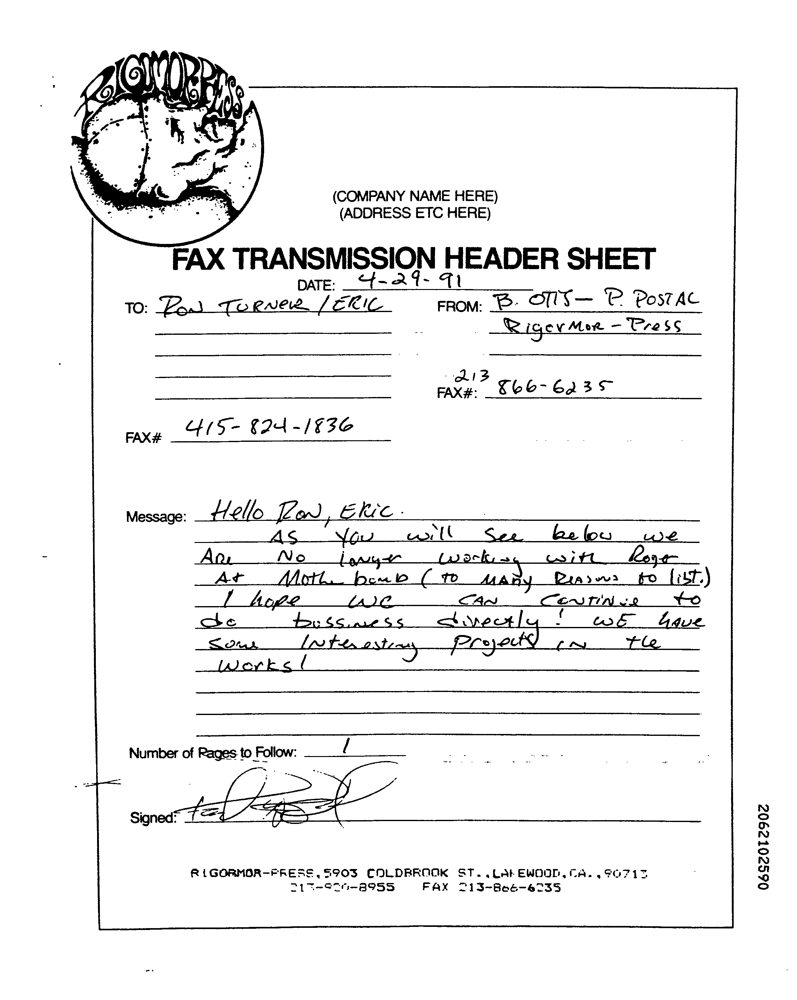 RIGOMORPRESS
(COMPANY NAME HERE)
(ADDRESS ETC HERE)
FAX TRANSMISSION HEADER SHEET
DATE: 4-29-91
TO: RON TURNER / ERIC
FROM: B. OTIS - P. POSTAL
RigerMor - Press
FAX#: 213 866-6235
FAX# 415-824-1836
Message: Hello RON, ERIC.
AS You will See below we
Are No longer working with Roger
At Mother bomb (to MANY Reasons to list.)
I hope WE CAN CONTINUE to
do bussiness directly! WE HAVE
Some Interesting Projects in the
Works!
Number of Pages to Follow: 1
Signed:
RIGORMOR-PRESS, 5903 COLDBROOK ST., LAKEWOOD, CA., 90713
213-920-8955 FAX 213-866-6235
2062102590